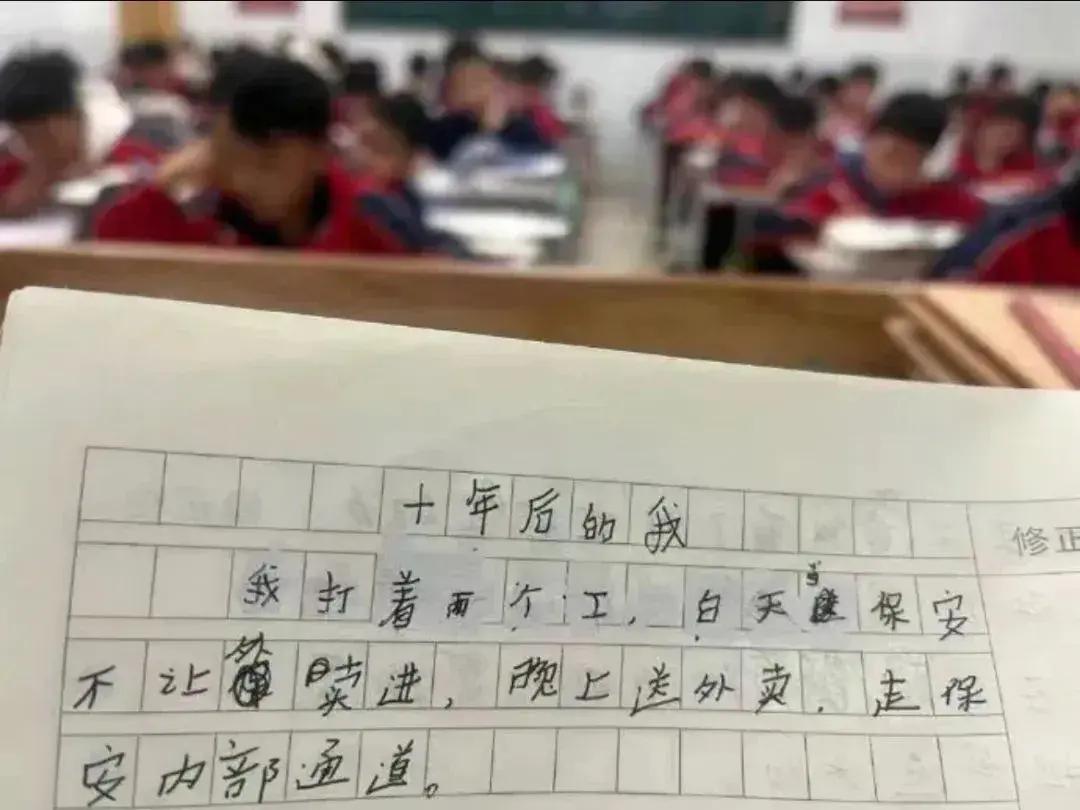 十年后的我
修正
我打着两个工，白天当保安
不让外卖进，晚上送外卖，走保
安内部通道。